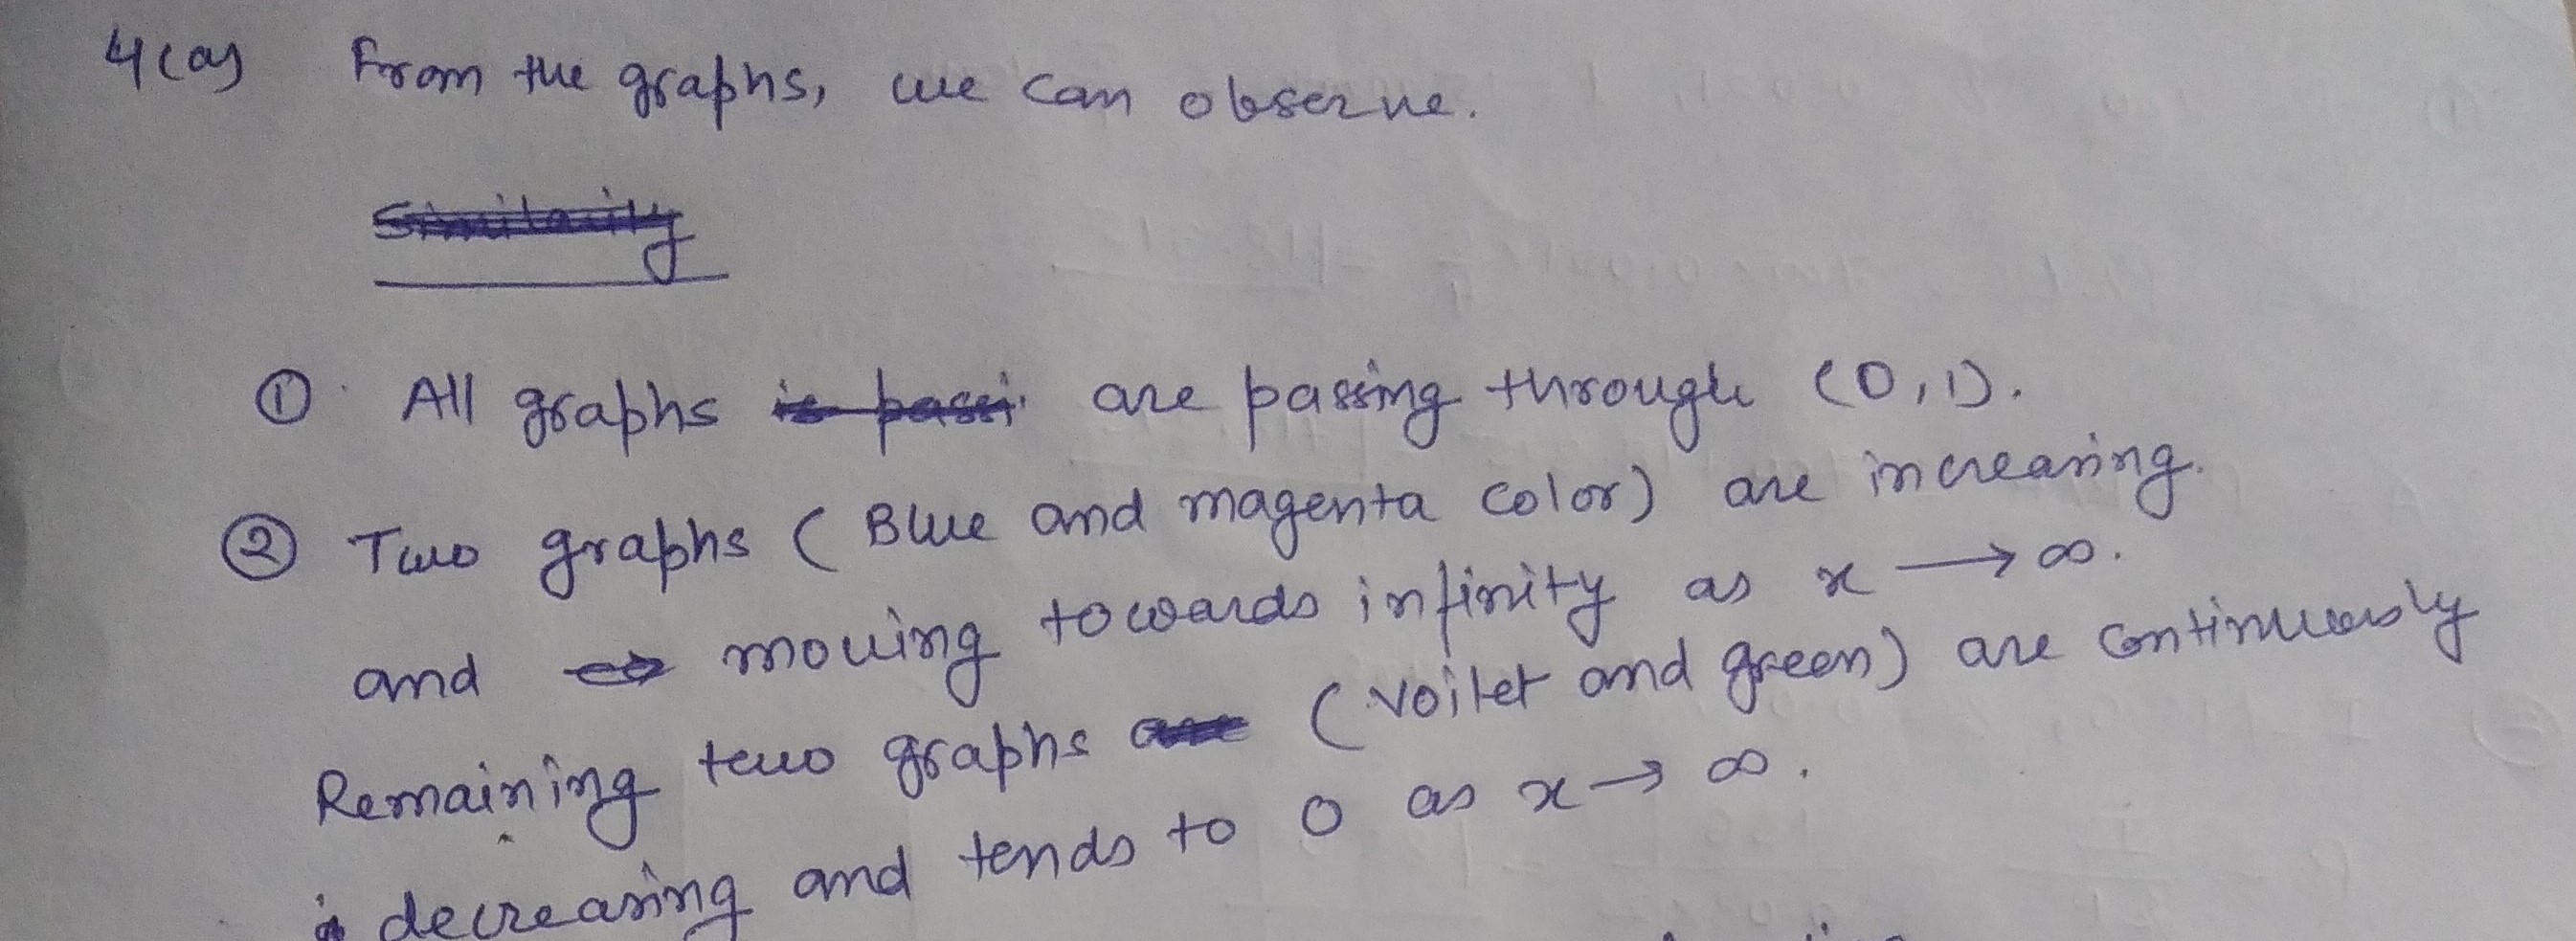 4(a) From the graphs, we can observe.
Similarity
① All graphs is passi are passing through (0,1).
② Two graphs ( Blue and magenta color) are increasing.
and moving towards infinity as x → ∞.
Remaining two graphs are ( voilet and green) are continuously
decreasing and tends to 0 as x → ∞.